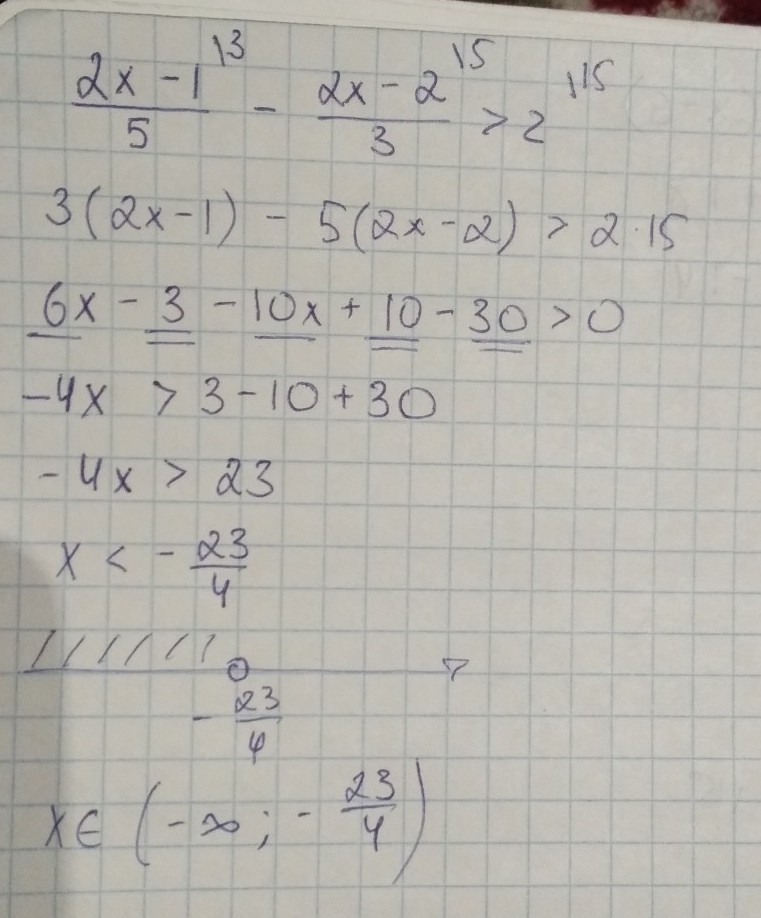 (2x - 1)/5 \3 - (2x - 2)/3 \5 > 2 \15
3(2x - 1) - 5(2x - 2) > 2 · 15
6x - 3 - 10x + 10 - 30 > 0
-4x > 3 - 10 + 30
-4x > 23
x < - 23/4
- 23/4
x ∈ (-∞; - 23/4)